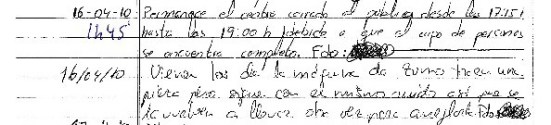 16-04-10 Permanece el centro cerrado al público desde las 17:15h
1h45 hasta las 19:00 h debido a que el cupo de personas
se encuentra completo. Fdo:
16/04/10 Vienen los de la máquina de zumo traen una
pieza pero sigue con el mismo ruido así que se
la vuelven a llevar otra vez para arreglarla. Fdo